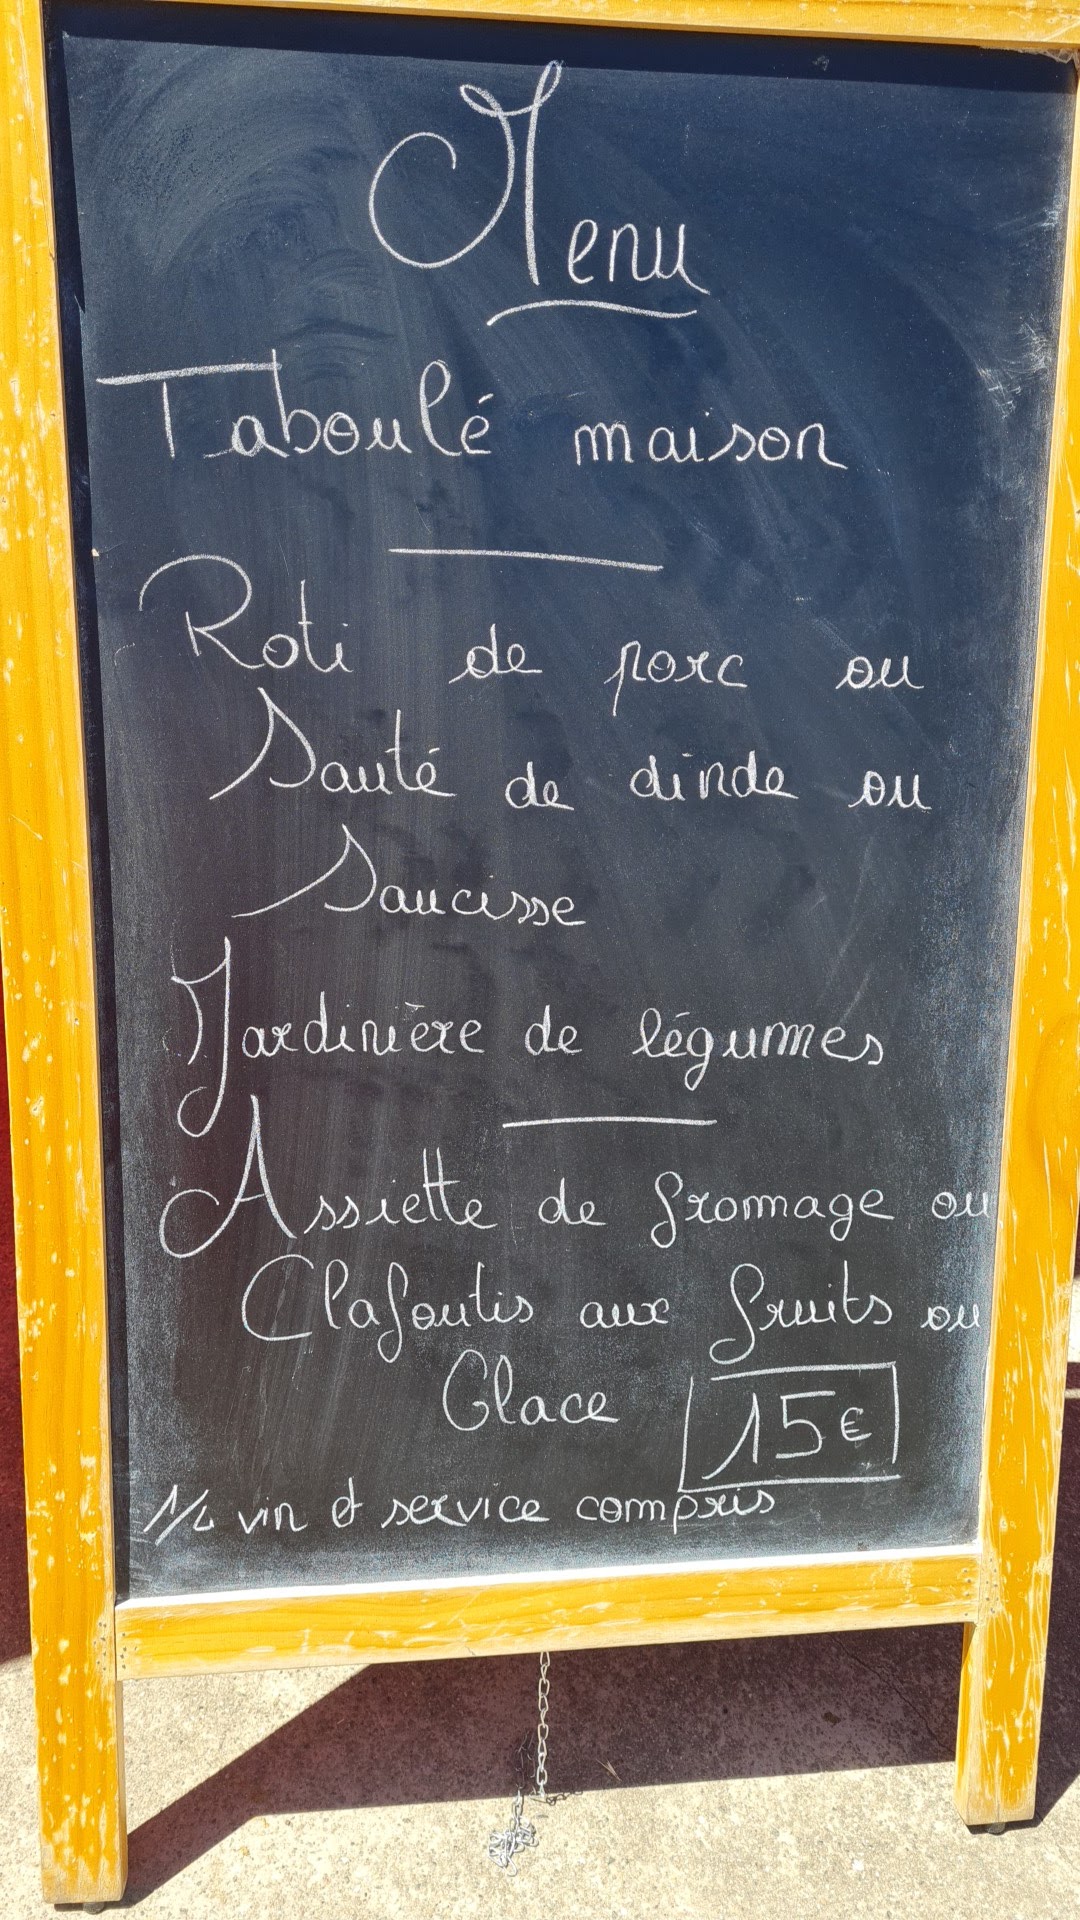 Menu
Taboulé maison
Roti de porc ou
Sauté de dinde ou
Saucisse
Jardinière de légumes
Assiette de fromage ou
Clafoutis aux fruits ou
Glace 15€
1/4 vin et service compris